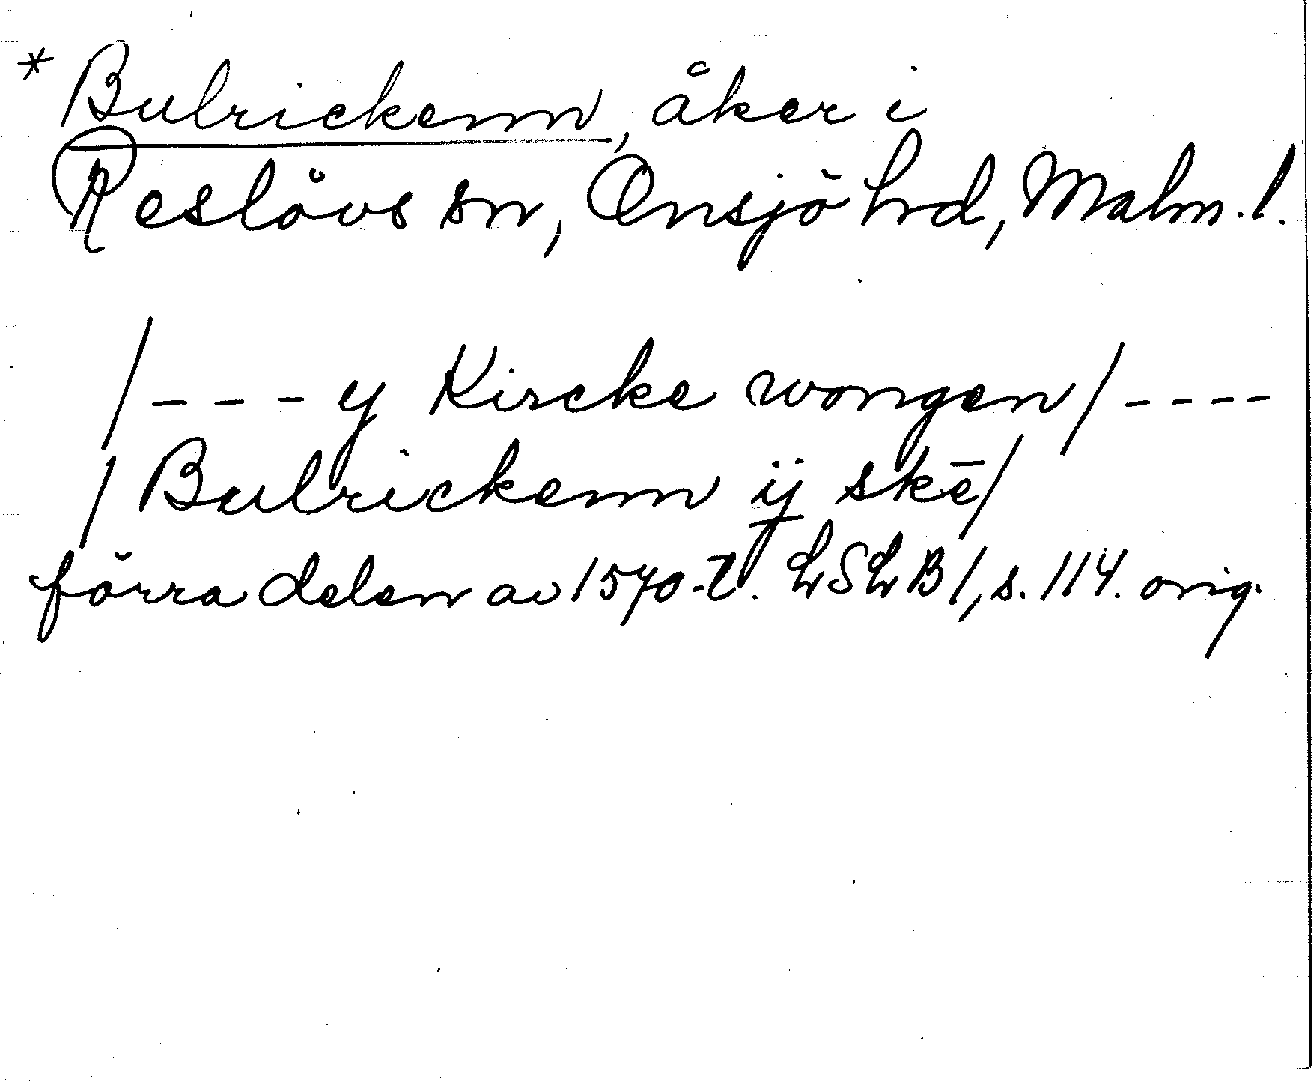 * Bulrickenn, åker i
Reslövs sn, Onsjö hrd, Malm. l.
/ - - - y Kircke wongen / - - - -
/ Bulrickenn ij skē /
förra delen av 1570-t. LSLB 1, s. 114. orig.